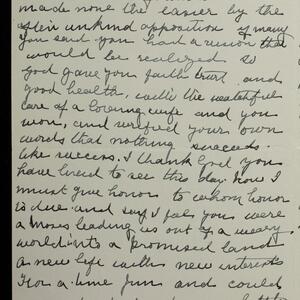 made none the easier by the
often unkind opposition of many
you said you had a vision that
would be realized so
God gave you faith trust and
good health, with the watchful
care of a loving wife and you
won, and verified your own
words that nothing succeeds
like success. I thank God you
have lived to see this day. now I
must give honor to whom honor
is due and say I feel you were
a Moses leading us out of a weary
world into a promised land
a new life with new interests
For a time Jim and could